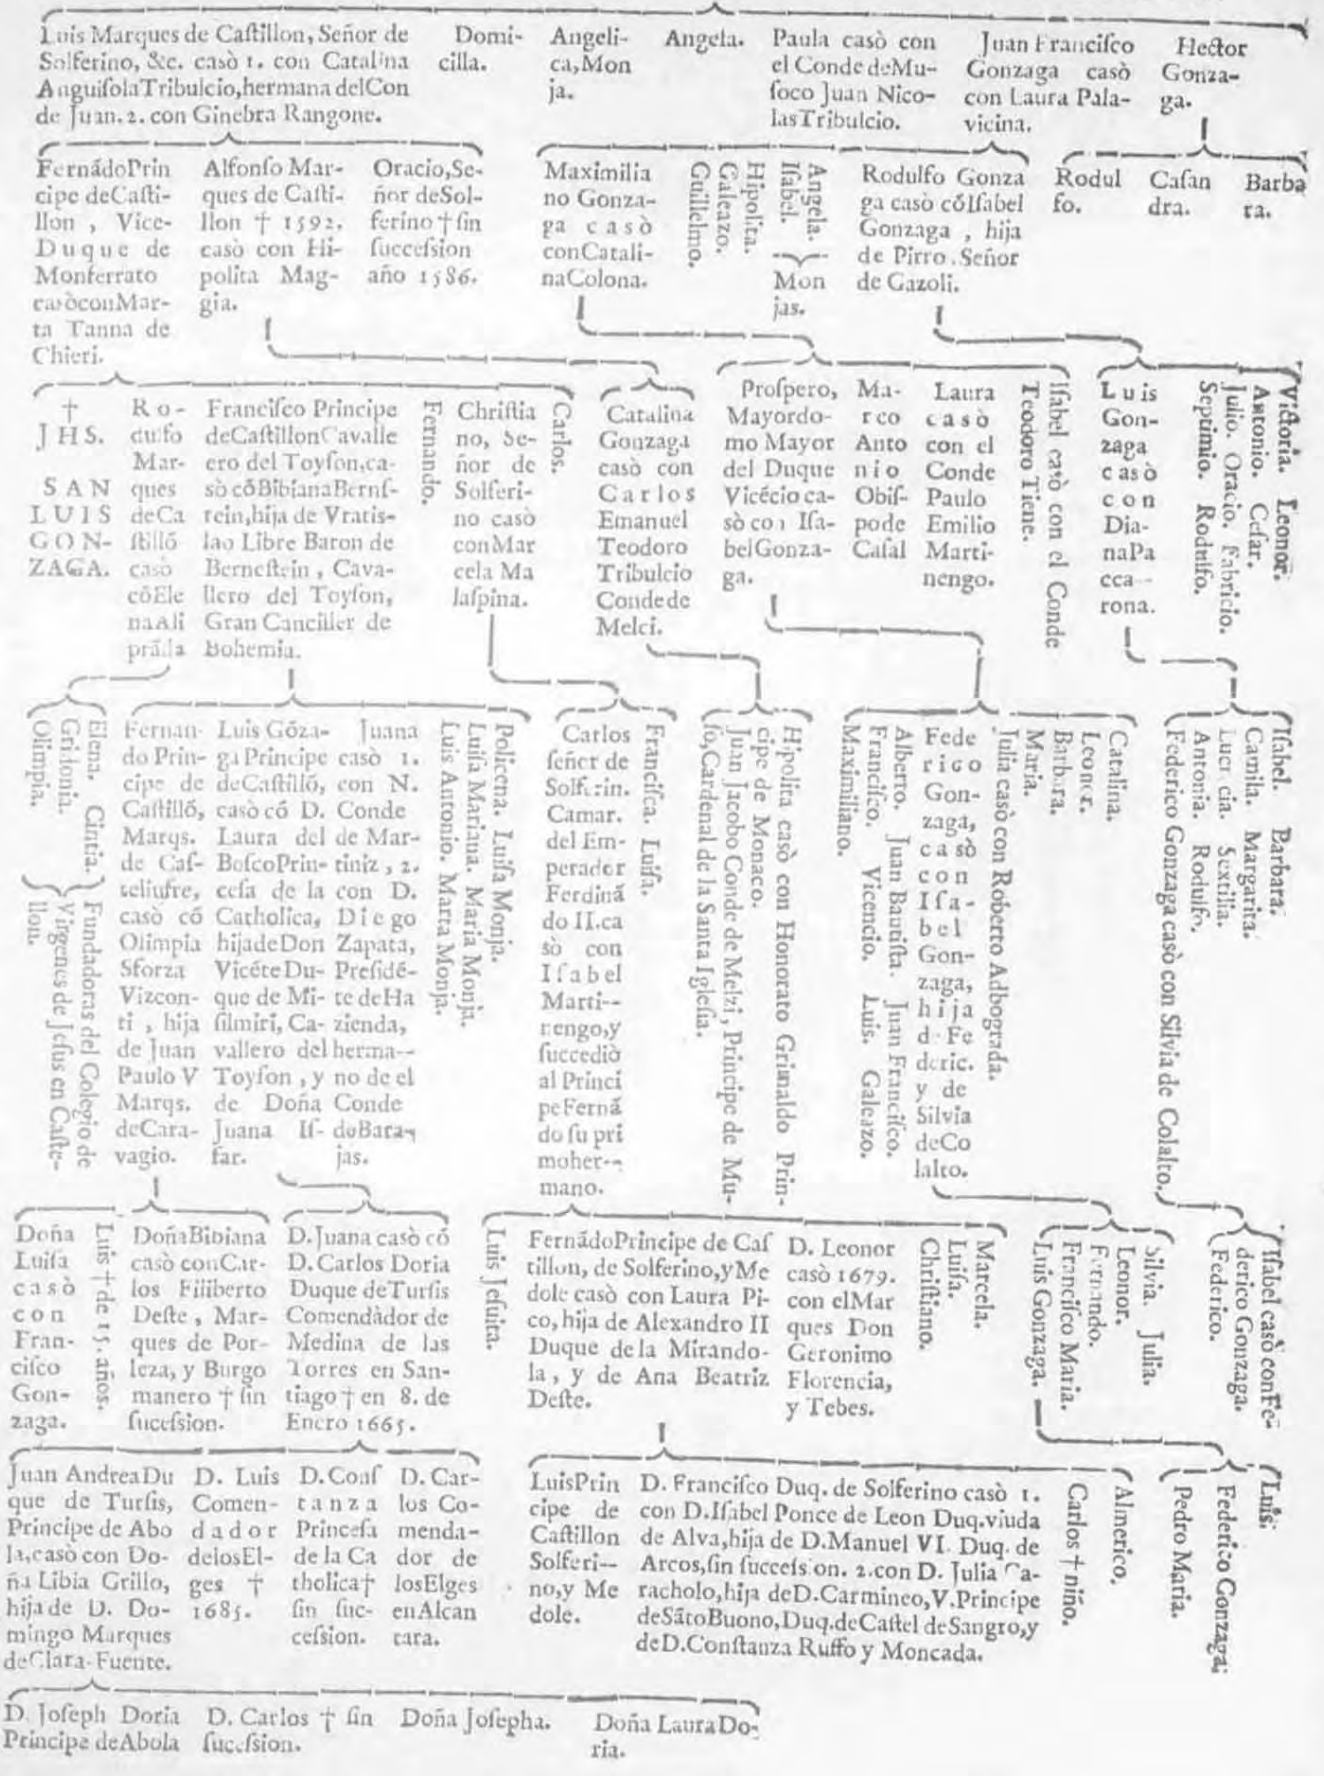 Luis Marques de Caſtillon, Señor de
Solferino, &c. casò 1. con Catalina
AnguiſolaTribulcio,hermana delCon
de Juan. 2. con Ginebra Rangone.
Domi-
cilla.
Angeli-
ca,Mon
ja.
Angela.
Paula casò con
el Conde deMu-
ſoco Juan Nico-
lasTribulcio.
Juan Franciſco
Gonzaga casò
con Laura Pala-
vicina.
Hector
Gonza-
ga.
FernádoPrin
cipe deCaſti-
llon , Vice-
Duque de
Monferrato
casòconMar-
ta Tanna de
Chieri.
Alfonſo Mar-
ques de Caſti-
llon † 1592.
casò con Hi-
polita Mag-
gia.
Oracio,Se-
ñor deSol-
ferino † ſin
ſucceſsion
año 1586.
Maximilia
no Gonza-
ga casò
conCatali-
naColona.
Guillelmo.
Galeazo.
Hipolita.
Iſabel.
Angela.
Mon
jas.
Rodulfo Gonza
ga casò cóIſabel
Gonzaga , hija
de Pirro.Señor
de Gazoli.
Rodul
fo.
Caſan
dra.
Barba
ra.
†
JHS.
SAN
LUIS
GON-
ZAGA.
Ro-
dulfo
Mar-
ques
deCa
ſtilló
casò
cóEle
naAli
práda
Franciſco Principe
deCaſtillonCavalle
ero del Toyſon,ca-
sò cóBibianaBernſ-
rein,hija de Vratis-
lao Libre Baron de
Berneſtein , Cava-
llero del Toyſon,
Gran Canciller de
Bohemia.
Fernando.
Chriſtia
no, Se-
ñor de
Solferi-
no casò
conMar
cela Ma
laſpina.
Carlos.
Catalina
Gonzaga
casò con
Carlos
Emanuel
Teodoro
Tribulcio
Condede
Melci.
Proſpero,
Mayordo-
mo Mayor
del Duque
Vicécio ca-
sò con Iſa-
belGonza-
ga.
Ma-
rco
Anto
nio
Obiſ-
pode
Caſal
Laura
casò
con el
Conde
Paulo
Emilio
Marti-
nengo.
Iſabel casò con el Conde
Teodoro Tiene.
Luis
Gon-
zaga
casò
con
Dia-
naPa
cca-
rona.
Victoria. Leonor.
Antonio. Ceſar.
Julio. Oracio. Fabricio.
Septimio. Rodulfo.
Elena. Cintia.
Gridonia.
Olimpia.
Fundadoras del Colegio de
Virgenes de Jeſus en Caſte-
llon.
Fernan-
do Prin-
cipe de
Caſtilló,
Marqs.
de Caſ-
teliufre,
casò có
Olimpia
Sforza
Vizcon-
ti , hija
de Juan
Paulo V
Marqs.
deCara-
vagio.
Luis Góza-
ga Principe
deCaſtilló,
casò có D.
Laura del
BoſcoPrin-
ceſa de la
Catholica,
hijadeDon
VicéteDu-
que de Mi-
ſilmiri, Ca-
vallero del
Toyſon , y
de Doña
Juana Iſ-
far.
Juana
casò 1.
con N.
Conde
de Mar-
tiniz , 2.
con D.
Diego
Zapata,
Preſidé-
te deHa
zienda,
herma--
no de el
Conde
deBara-
jas.
Policena. Luiſa Monja.
Luiſa Mariana. Maria Monja.
Luis Antonio. Marta Monja.
Carlos
señor de
Solferin.
Camar.
del Em-
perador
Ferdiná
do II.ca
sò con
Iſabel
Marti--
nengo,y
ſuccediò
al Princi
peFerná
do ſu pri
moher--
mano.
Franciſca. Luiſa.
Hipolita casò con Honorato Grimaldo Prin-
cipe de Monaco.
Juan Jacobo Conde de Melzi , Principe de Mu-
ſo,Cardenal de la Santa Igleſia.
Alberto. Juan Bautiſta. Juan Franciſco.
Franciſco. Vicencio. Luis. Galeazo.
Maximiliano.
Fede
rico
Gon-
zaga,
casò
con
Iſa-
bel
Gon-
zaga,
hija
d Fe
deric.
y de
Silvia
deCo
lalto.
Catalina.
Leonor.
Barbara.
Maria.
Julia casò con Roberto Adbograda.
Iſabel. Barbara.
Camila. Margarita.
Lucrecia. Sextilia.
Antonia. Rodulfo.
Federico Gonzaga casò con Silvia de Colalto.
Doña
Luiſa
casò
con
Fran-
ciſco
Gon-
zaga.
Luis † de 15. años.
DoñaBibiana
casò conCar-
los Filiberto
Deſte , Mar-
ques de Por-
leza, y Burgo
manero † ſin
ſuceſsion.
D.Juana casò có
D.Carlos Doria
Duque deTurſis
Comendador de
Medina de las
Torres en San-
tiago † en 8. de
Enero 1665.
Luis Jeſuita.
FernádoPrincipe de Caſ
tillon, de Solferino,yMe
dole casò con Laura Pi-
co, hija de Alexandro II
Duque dela Mirando-
la , y de Ana Beatriz
Deſte.
D. Leonor
casò 1679.
con elMar
ques Don
Geronimo
Florencia,
y Tebes.
Marcela.
Luiſa.
Chriſtiano.
Silvia. Julia.
Leonor.
Fernando.
Franciſco Maria.
Luis Gonzaga.
Iſabel casò conFe-
derico Gonzaga.
Federico.
Juan AndreaDu
que de Turſis,
Principe de Abo
la,casò con Do-
ña Libia Grillo,
hija de D. Do-
mingo Marques
deClara-Fuente.
D. Luis
Comen-
dador
delosEl-
ges †
1685.
D.Conſ
tanza
Princeſa
de la Ca
tholica†
ſin ſuc-
ceſsion.
D. Car-
los Co-
menda-
dor de
losElges
enAlcan
tara.
LuisPrin
cipe de
Caſtillon
Solferi--
no,y Me
dole.
D. Franciſco Duq. de Solferino casò 1.
con D.Iſabel Ponce de Leon Duq.viuda
de Alva,hija de D.Manuel VI. Duq. de
Arcos,ſin ſucceſsion. 2.con D. Julia Ca-
racholo,hija deD.Carmineo,V.Principe
deSátoBuono,Duq.deCaſtel deSangro,y
deD.Conſtanza Ruffo y Moncada.
Almerico.
Carlos † niño.
Luis.
Federico Gonzaga;
Pedro Maria.
D. Joſeph Doria
Principe deAbola
D. Carlos † ſin
ſuceſsion.
Doña Joſepha.
Doña LauraDo-
ria.